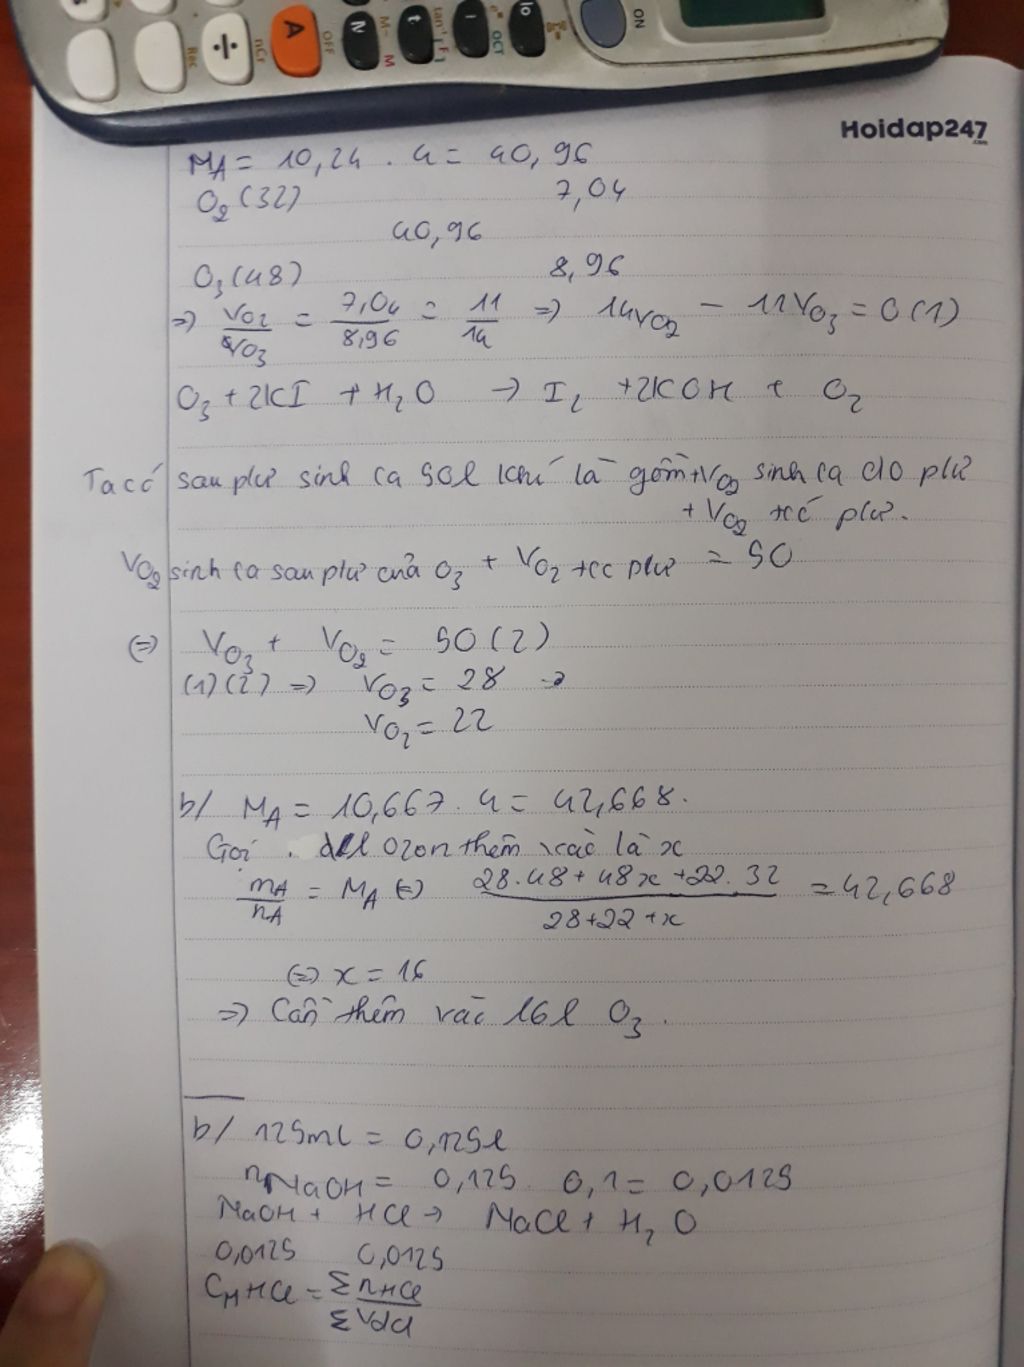 ON
OFF
A
÷
Rec
nCr
M-
M
OCT
Hoidap247
.com
M_A = 10,24 . 4 = 40,96
O₂ (32) 7,04
40,96
O₃ (48) 8,96
=> VO₂/VO₃ = 7,04/8,96 = 11/14 => 14VO₂ - 11VO₃ = 0 (1)
O₃ + 2KI + H₂O → I₂ + 2KOH + O₂
Ta có sau pứ sinh ra 50l khí là gồm + VO₂ sinh ra do pứ
+ VO₂ trc pứ.
VO₂ sinh ra sau pứ của O₃ + VO₂ trc pứ = 50
(=) VO₃ + VO₂ = 50 (2)
(1)(2) => VO₃ = 28 →
VO₂ = 22
b/ M_A = 10,667 . 4 = 42,668.
Gọi ozon thêm vào là x
m_A/n_A = M_A (=) (28.48 + 48x + 22.32)/(28+22+x) = 42,668
(=) x = 16
=> Cần thêm vào 16l O₃.
b/ 125ml = 0,125l
nNaOH = 0,125 . 0,1 = 0,0125
NaOH + HCl → NaCl + H₂O
0,0125 0,0125
C_M HCl = Σ nHCl / Σ Vdd